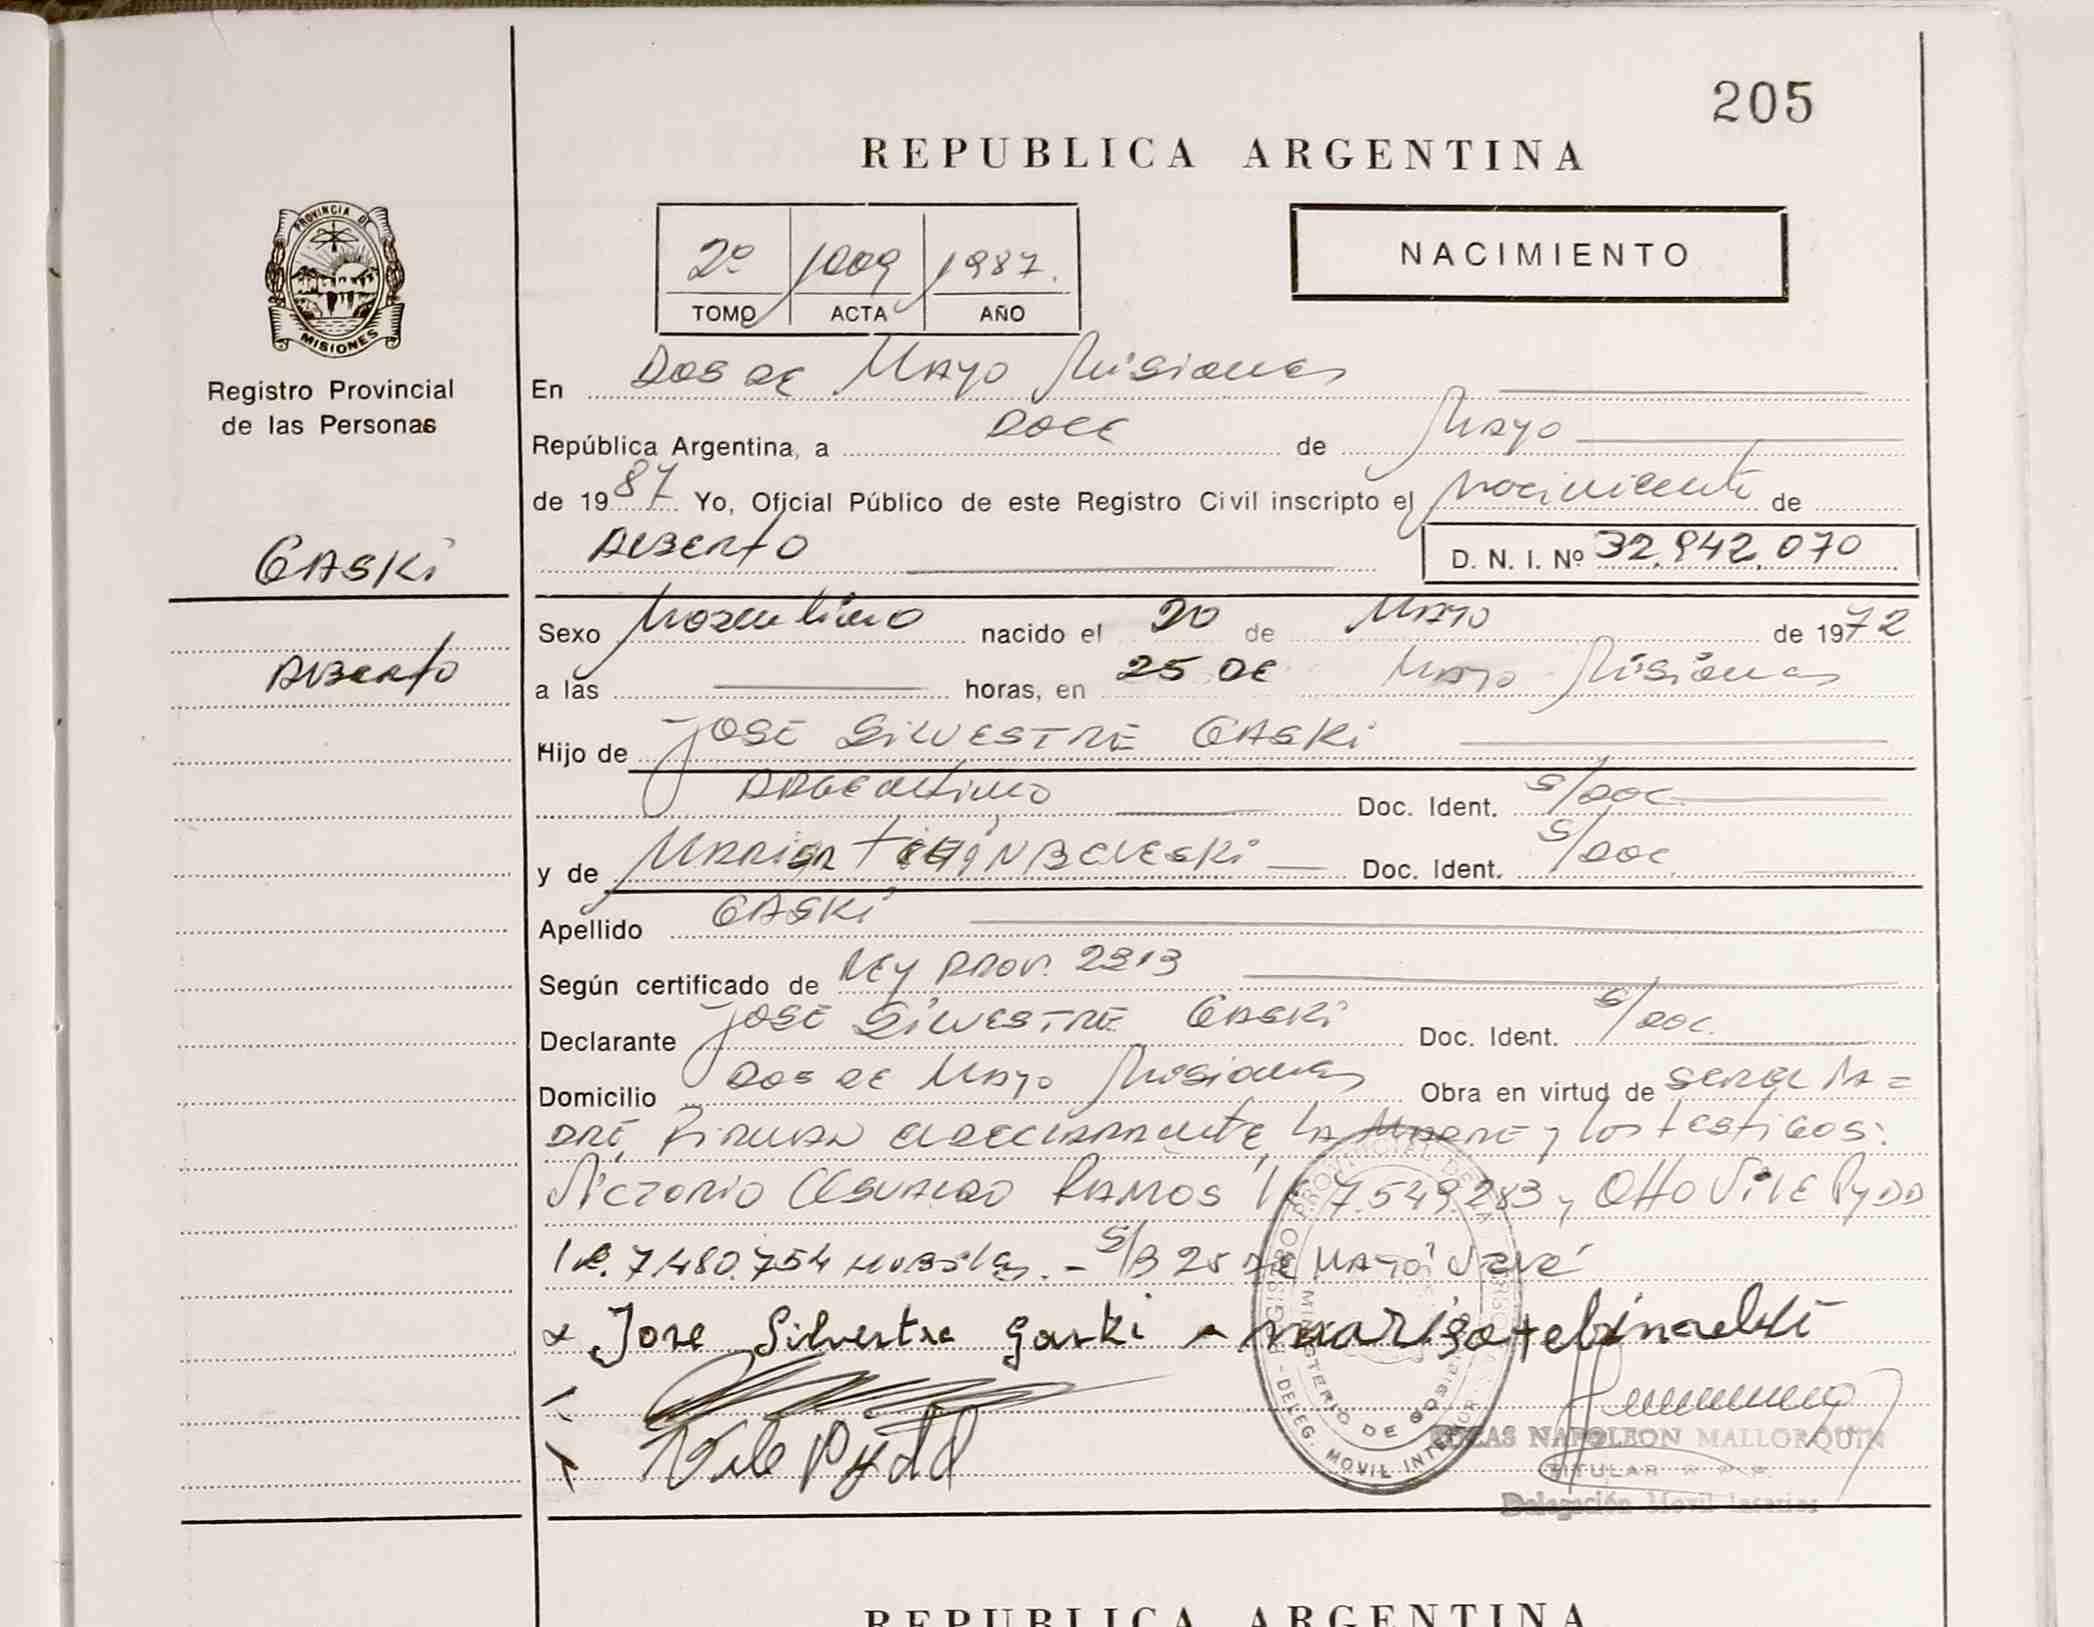 205
REPUBLICA ARGENTINA
2º 1009 1987.
TOMO ACTA AÑO
NACIMIENTO
PROVINCIA DE MISIONES
Registro Provincial
de las Personas
GASKi
ALBERTO
En DOS DE MAYO Misiones
República Argentina, a DOCE de Mayo
de 1987 Yo, Oficial Público de este Registro Civil inscripto el Nacimiento de
ALBERTO D. N. I. Nº 32.942.070
Sexo Masculino nacido el 20 de MAYO de 1972
a las horas, en 25 DE MAYO Misiones
Hijo de JOSE SiLVESTRE GASKi
ARGENtiNO Doc. Ident. S/DOC
y de Doc. Ident. S/DOC
Apellido GASKi
Según certificado de LEY PROV. 2313
Declarante JOSE SiLVESTRE GASKi Doc. Ident. S/DOC.
Domicilio DOS DE MAYO Misiones Obra en virtud de SER EL PA=
DRE, FiRMAN el DECLARANTE, LA MADRE y los testigos:
Victorio OSVALDO RAMOS 7.549.283 y OttO ViLE PyDD
7.480.754 S/B 25 DE MAYO
Jose Silvestre Gaski
Vile Pydd
REGISTRO PROVINCIAL DE LAS PERSONAS
MINISTERIO DE GOBIERNO
DELEG. MOVIL INTERIOR
LUCAS NAPOLEON MALLORQUIN
TITULAR
Delegación Movil
REPUBLICA ARGENTINA